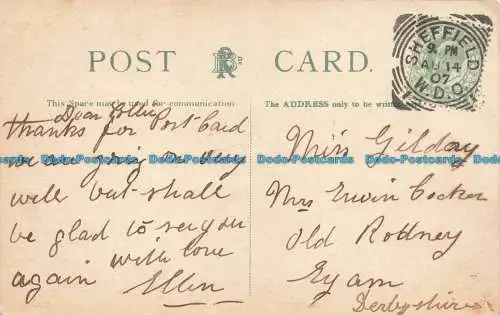 POST CARD.
This Space may be used for communication
The ADDRESS only to be written
SHEFFIELD
9. PM
AU 14
07
N.D.O.
Dear
thanks for Post Card
we are very
well but shall
be glad to see you
again with love
Ellen
Miss Gilday
Mrs Erwin Cocker
Old Rodney
Eyam
Derbyshire
Dodo-Postcards Dodo-Postcards Dodo-Postcards Dodo-Postcards Dodo-Postcards Dodo-Postcards